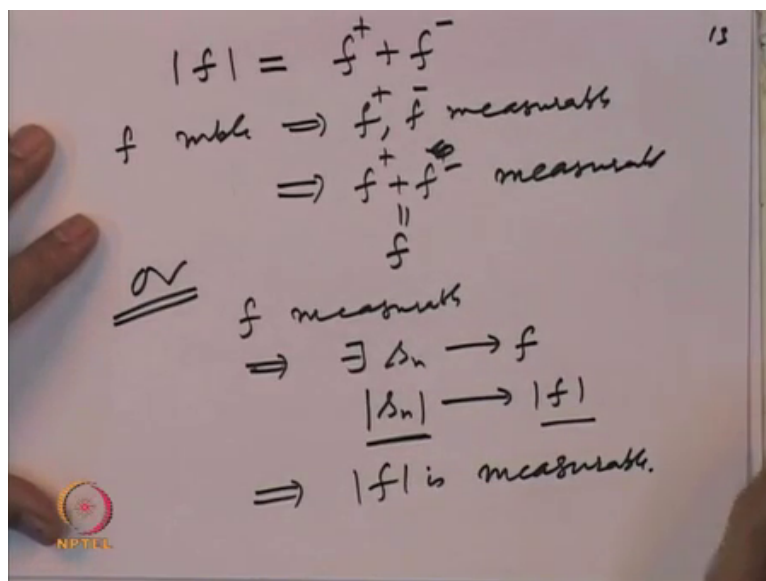 13
|f| = f⁺ + f⁻
f mble ⇒ f⁺, f⁻ measurable
⇒ f⁺ + f⁻ measurable
||
f
or
f measurable
⇒ ∃ sₙ → f
|sₙ| → |f|
⇒ |f| is measurable.
NPTEL